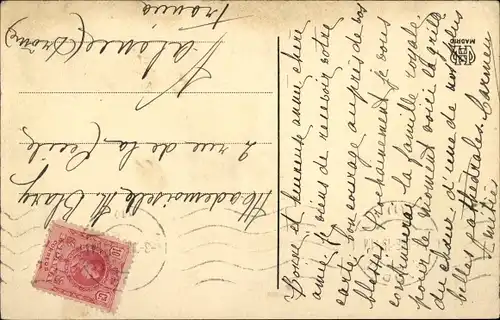 Bonne et heureuse année chère
amie. Je viens de recevoir votre
carte. Bon courage auprès de vos
blessés. Prochainement je vous
continuerai la famille royale.
pour le moment voici la grille
du chœur d'une de nos plus
belles cathédrales. Carmen
Amitiés
Mademoiselle M. Blanc
2 rue de la Cecile
Valence (Drôme)
France
MADRID